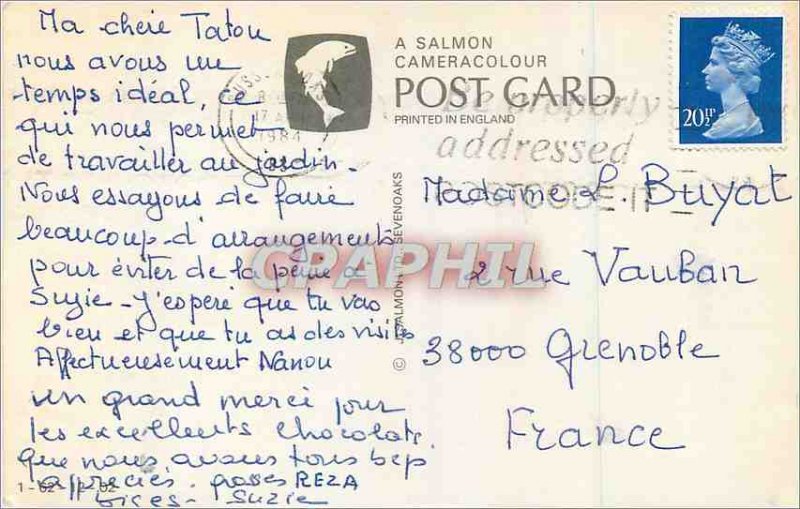 Ma chère Tatou
nous avons un
temps idéal, ce
qui nous permet
de travailler au jardin.
Nous essayons de faire
beaucoup d'arrangements
pour éviter de la peine à
Suzie - J'espère que tu vas
bien et que tu as des visites
Affectueusement Nanou
un grand merci pour
les excellents chocolats.
que nous avons tous bcp
appréciés. grosses REZA
bices - Suzie
1-02-12-02
A SALMON
CAMERACOLOUR
POST CARD
PRINTED IN ENGLAND
17 A
1984
Be properly
addressed
POSTCODE IT
20½P
© J SALMON LTD SEVENOAKS
GRAPHIL
Madame L. Buyat
2 rue Vauban
38000 Grenoble
France